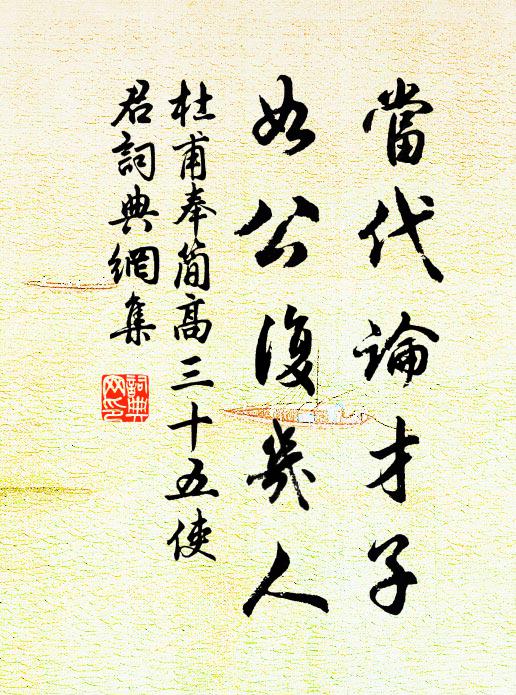 當代論才子
如公復幾人
杜甫奉簡高三十五使
君詞典網集
詞典
网印